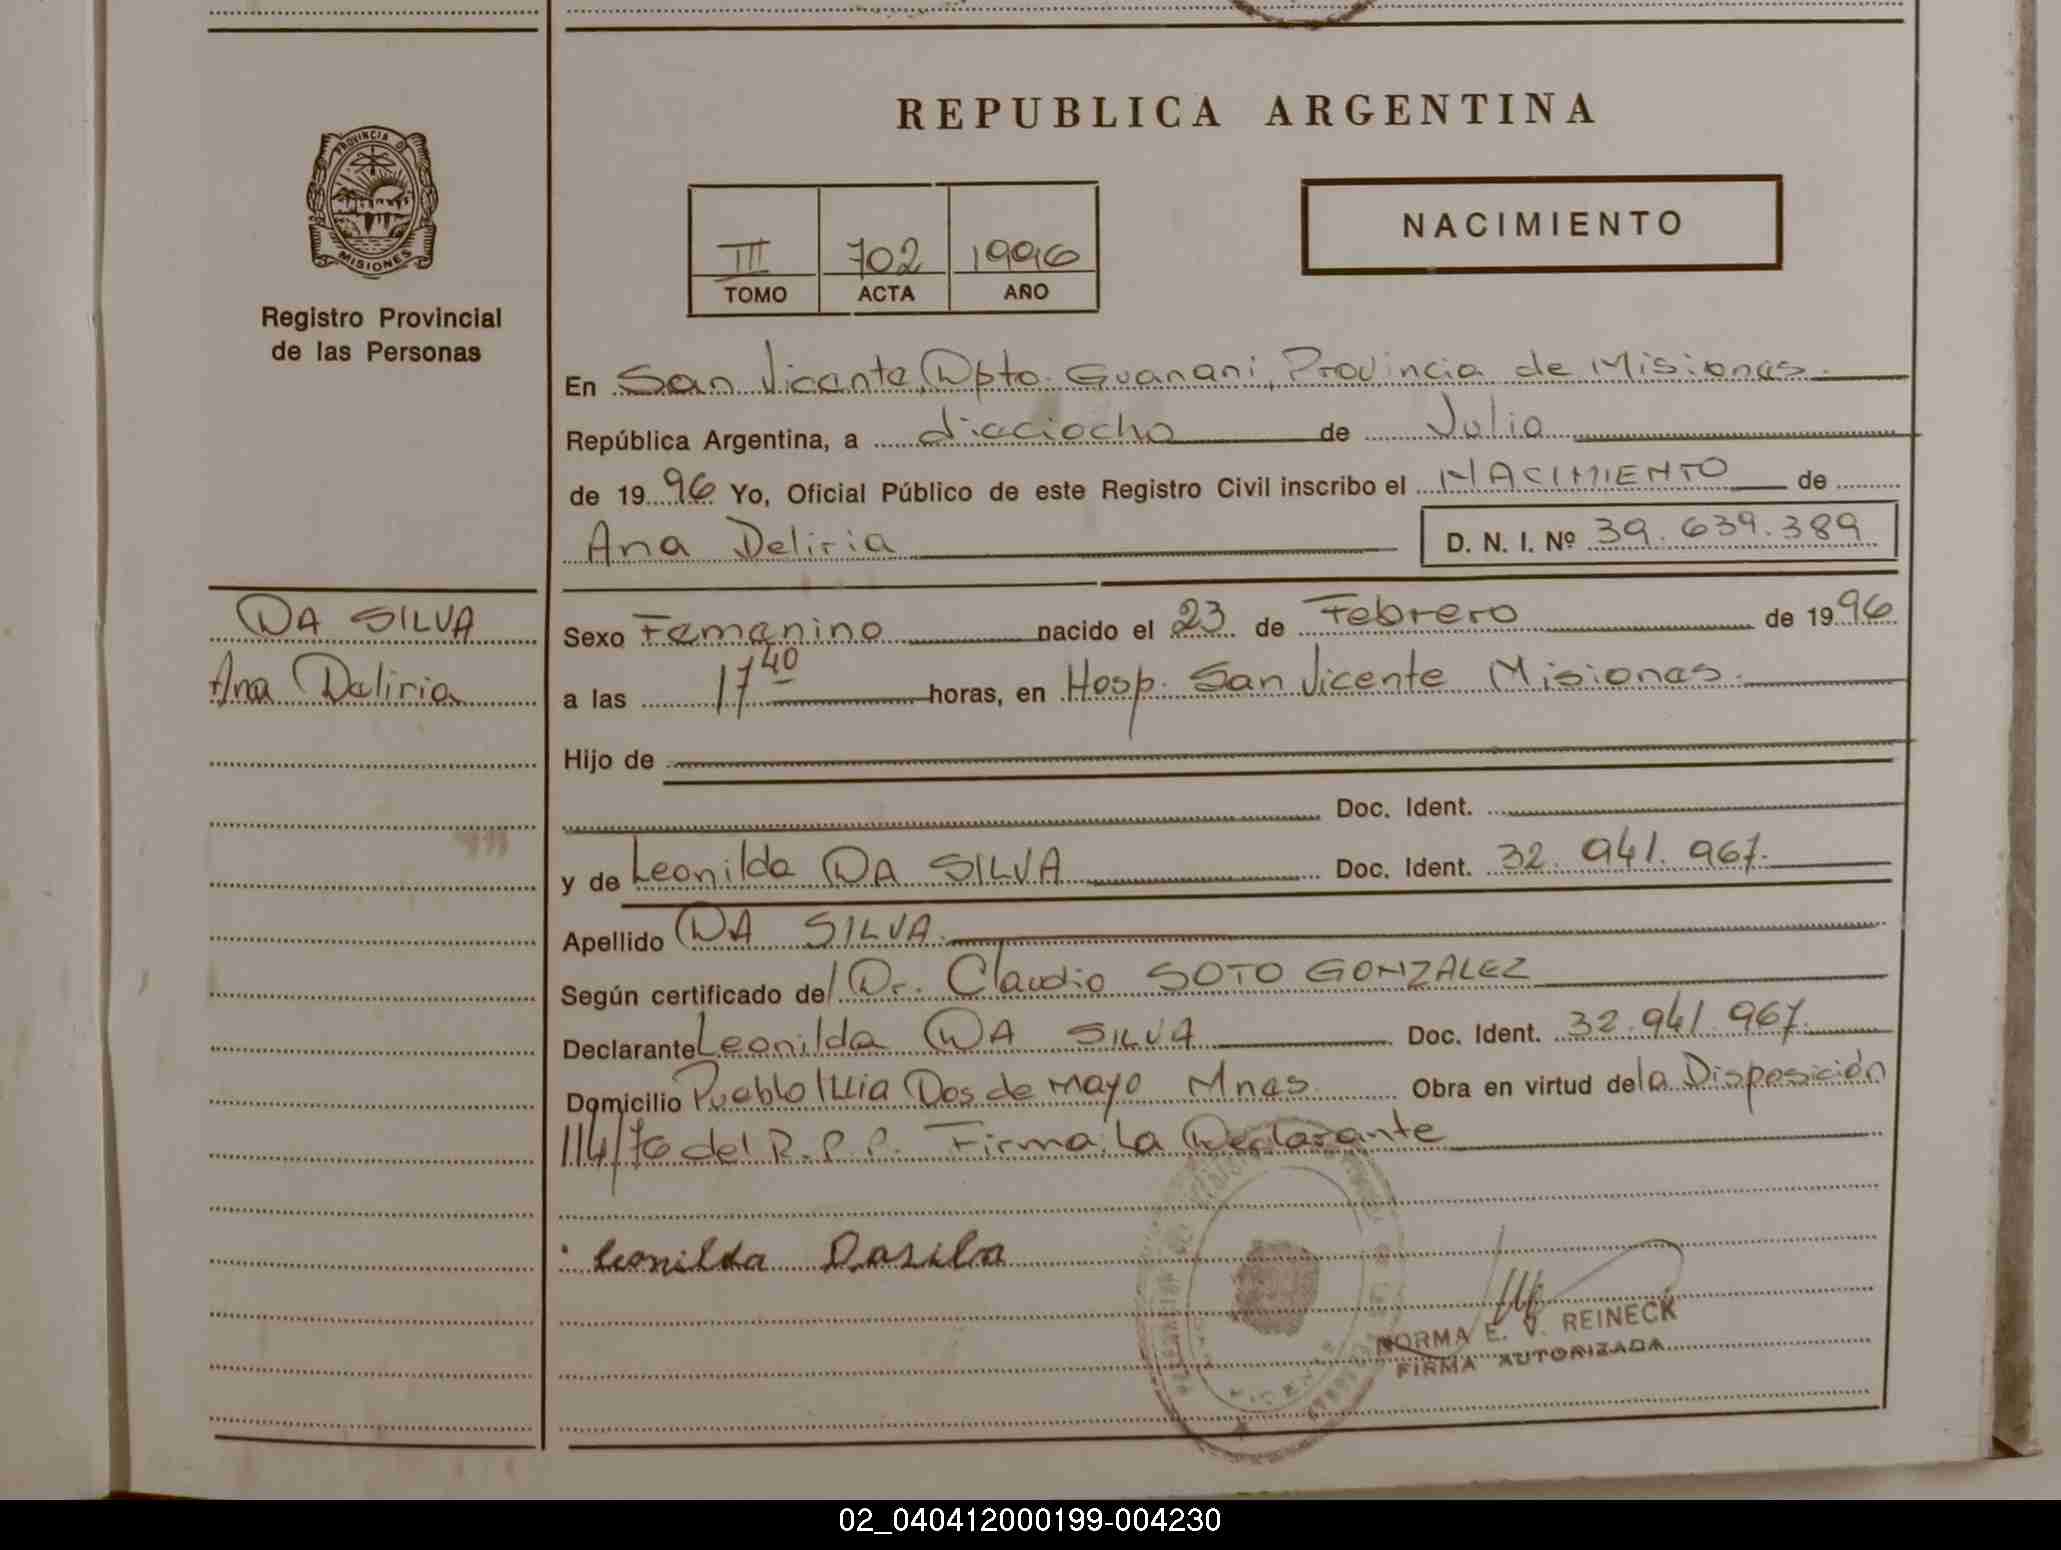 REPUBLICA ARGENTINA
PROVINCIA DE
MISIONES
Registro Provincial
de las Personas
III 702 1996
TOMO ACTA AÑO
NACIMIENTO
En San Vicente, Dpto. Guaraní, Provincia de Misiones.
República Argentina, a dieciocho de Julio
de 1996 Yo, Oficial Público de este Registro Civil inscribo el NACIMIENTO de
Ana Deliria D. N. I. Nº 39.639.389
DA SILVA
Ana Deliria
Sexo Femenino nacido el 23 de Febrero de 1996
a las 17 40 horas, en Hosp. San Vicente Misiones.
Hijo de
Doc. Ident.
y de Leonilda DA SILVA Doc. Ident. 32.941.967.
Apellido DA SILVA.
Según certificado del Dr. Claudio SOTO GONZALEZ
Declarante Leonilda DA SILVA Doc. Ident. 32.941.967.
Domicilio Pueblo Illia Dos de mayo Mnes. Obra en virtud de la Disposición
114/76 del R.P.P. Firma: La Declarante
Leonilda Dasila
NORMA E. V. REINECK
FIRMA AUTORIZADA
02_040412000199-004230